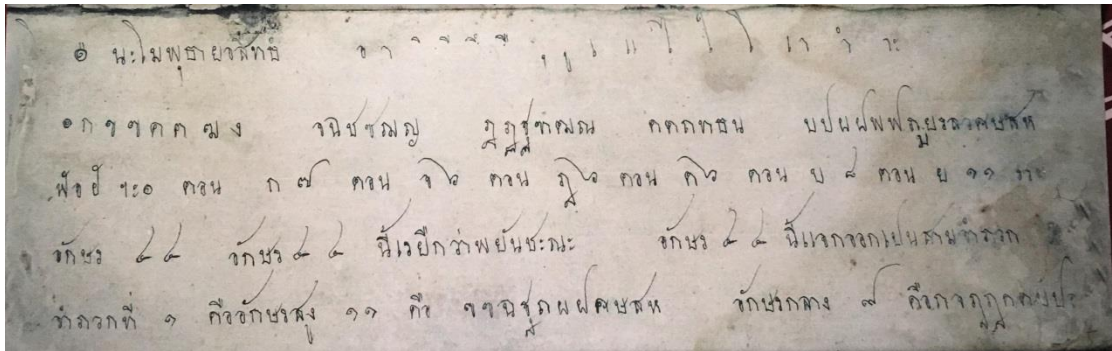 ๏ นะโมพุทธายะสิทธํ อา ิ ี ึ ื ุ ู เ แ ไ ใ โ เา ำ าะ
๏ กขฃคฅฆง จฉชซฌญ ฎฏฐฑฒณ ดตถทธน บปผฝพฟภมยรลวศษสห
ฬอฮ ฯะ๏ ตอน ก ๗ ตอน จ ๖ ตอน ฎ ๖ ตอน ด ๖ ตอน บ ๘ ตอน ย ๑๑
อักษร ๔๔ อักษร ๔๔ นี้เรียกว่าพยันชะณะ อักษร ๔๔ นี้แจกออกเปนสามจำพวก
จำพวกที่ ๑ คืออักษรสูง ๑๑ คือ ขฃฉฐถผฝศษสห อักษรกลาง ๙ คือกจฎฏดตบป